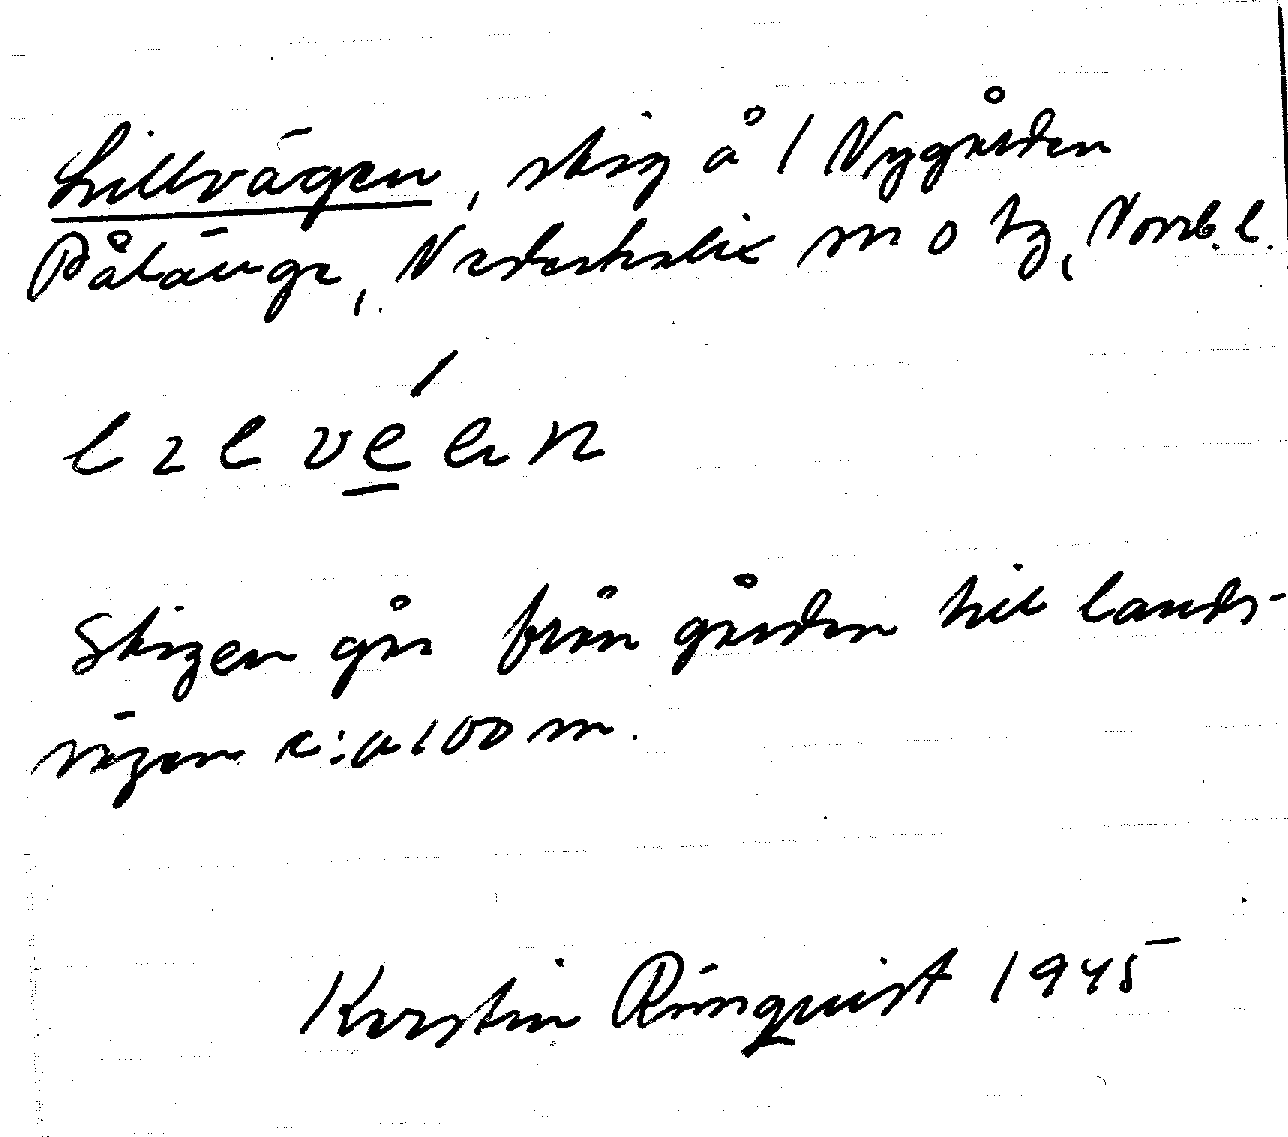 Lillvägen, stig å 1 Nygården
Pålänge, Nederkalix sn o tg, Norrb. l.
Stigen går från gården till lands-
vägen c:a 100 m.
Kerstin Rönquist 1945